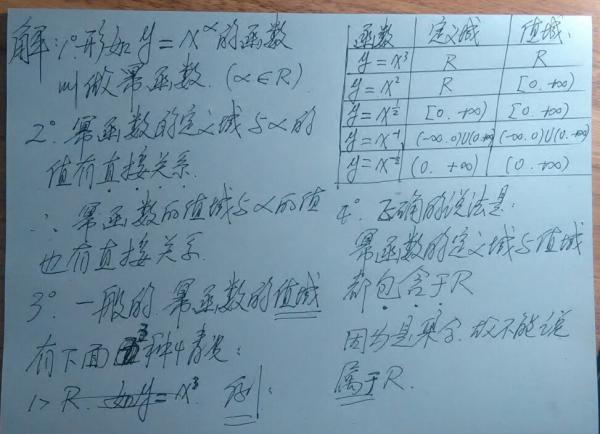 解:1° 形如 y = x^α 的函数
叫做幂函数. (α∈R)
2° 幂函数的定义域与α的
值有直接关系.
∴ 幂函数的值域与α的值
也有直接关系.
3° 一般的 幂函数的值域
有下面3种情况:
1> R. 如 y = x³ 列:
函数 定义域 值域.
y = x³ R R
y = x² R [0.+∞)
y = x^½ [0.+∞) [0.+∞)
y = x⁻¹ (-∞.0)U(0.+∞) (-∞.0)U(0.+∞)
(0.+∞) (0.+∞)
4° 正确的说法是:
幂函数的定义域与值域
都包含于R
因为是集合.故不能说
属于R.